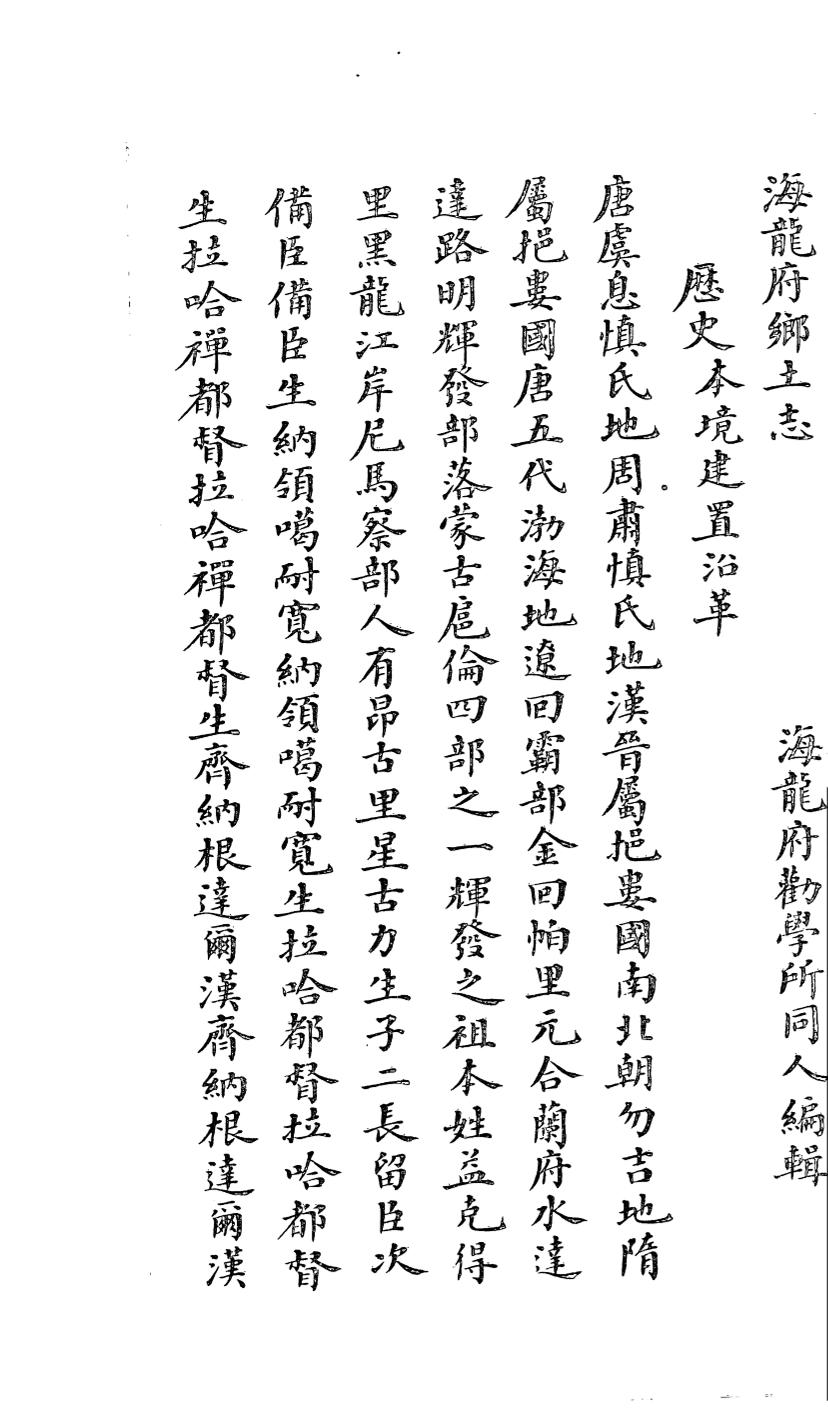 海龍府鄉土志　海龍府勸學所同人編輯
歷史本境建置沿革
唐虞息慎氏地周肅慎氏地漢晉屬挹婁國南北朝勿吉地隋
屬挹婁國唐五代渤海地遼回霸部金回怕里元合蘭府水達
達路明輝發部落蒙古扈倫四部之一輝發之祖本姓益克得
里黑龍江岸尼馬察部人有昂古里星古力生子二長留臣次
備臣備臣生納領噶耐寬納領噶耐寬生拉哈都督拉哈都督
生拉哈禪都督拉哈禪都督生齊納根達爾漢齊納根達爾漢